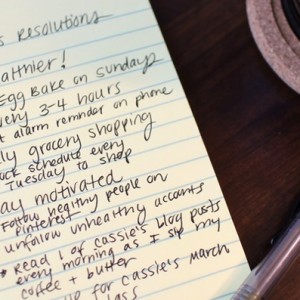 s Resolutions
althier!
Egg Bake on Sundays
very 3-4 hours
t alarm reminder on phone
ly grocery shopping
ock schedule every
Tuesday to shop
ay motivated
Follow healthy people on
Pinterest
unfollow unhealthy accounts
* Read 1 of Cassie's blog posts
every morning as I sip my
coffee + butter
up for Cassie's March
lass